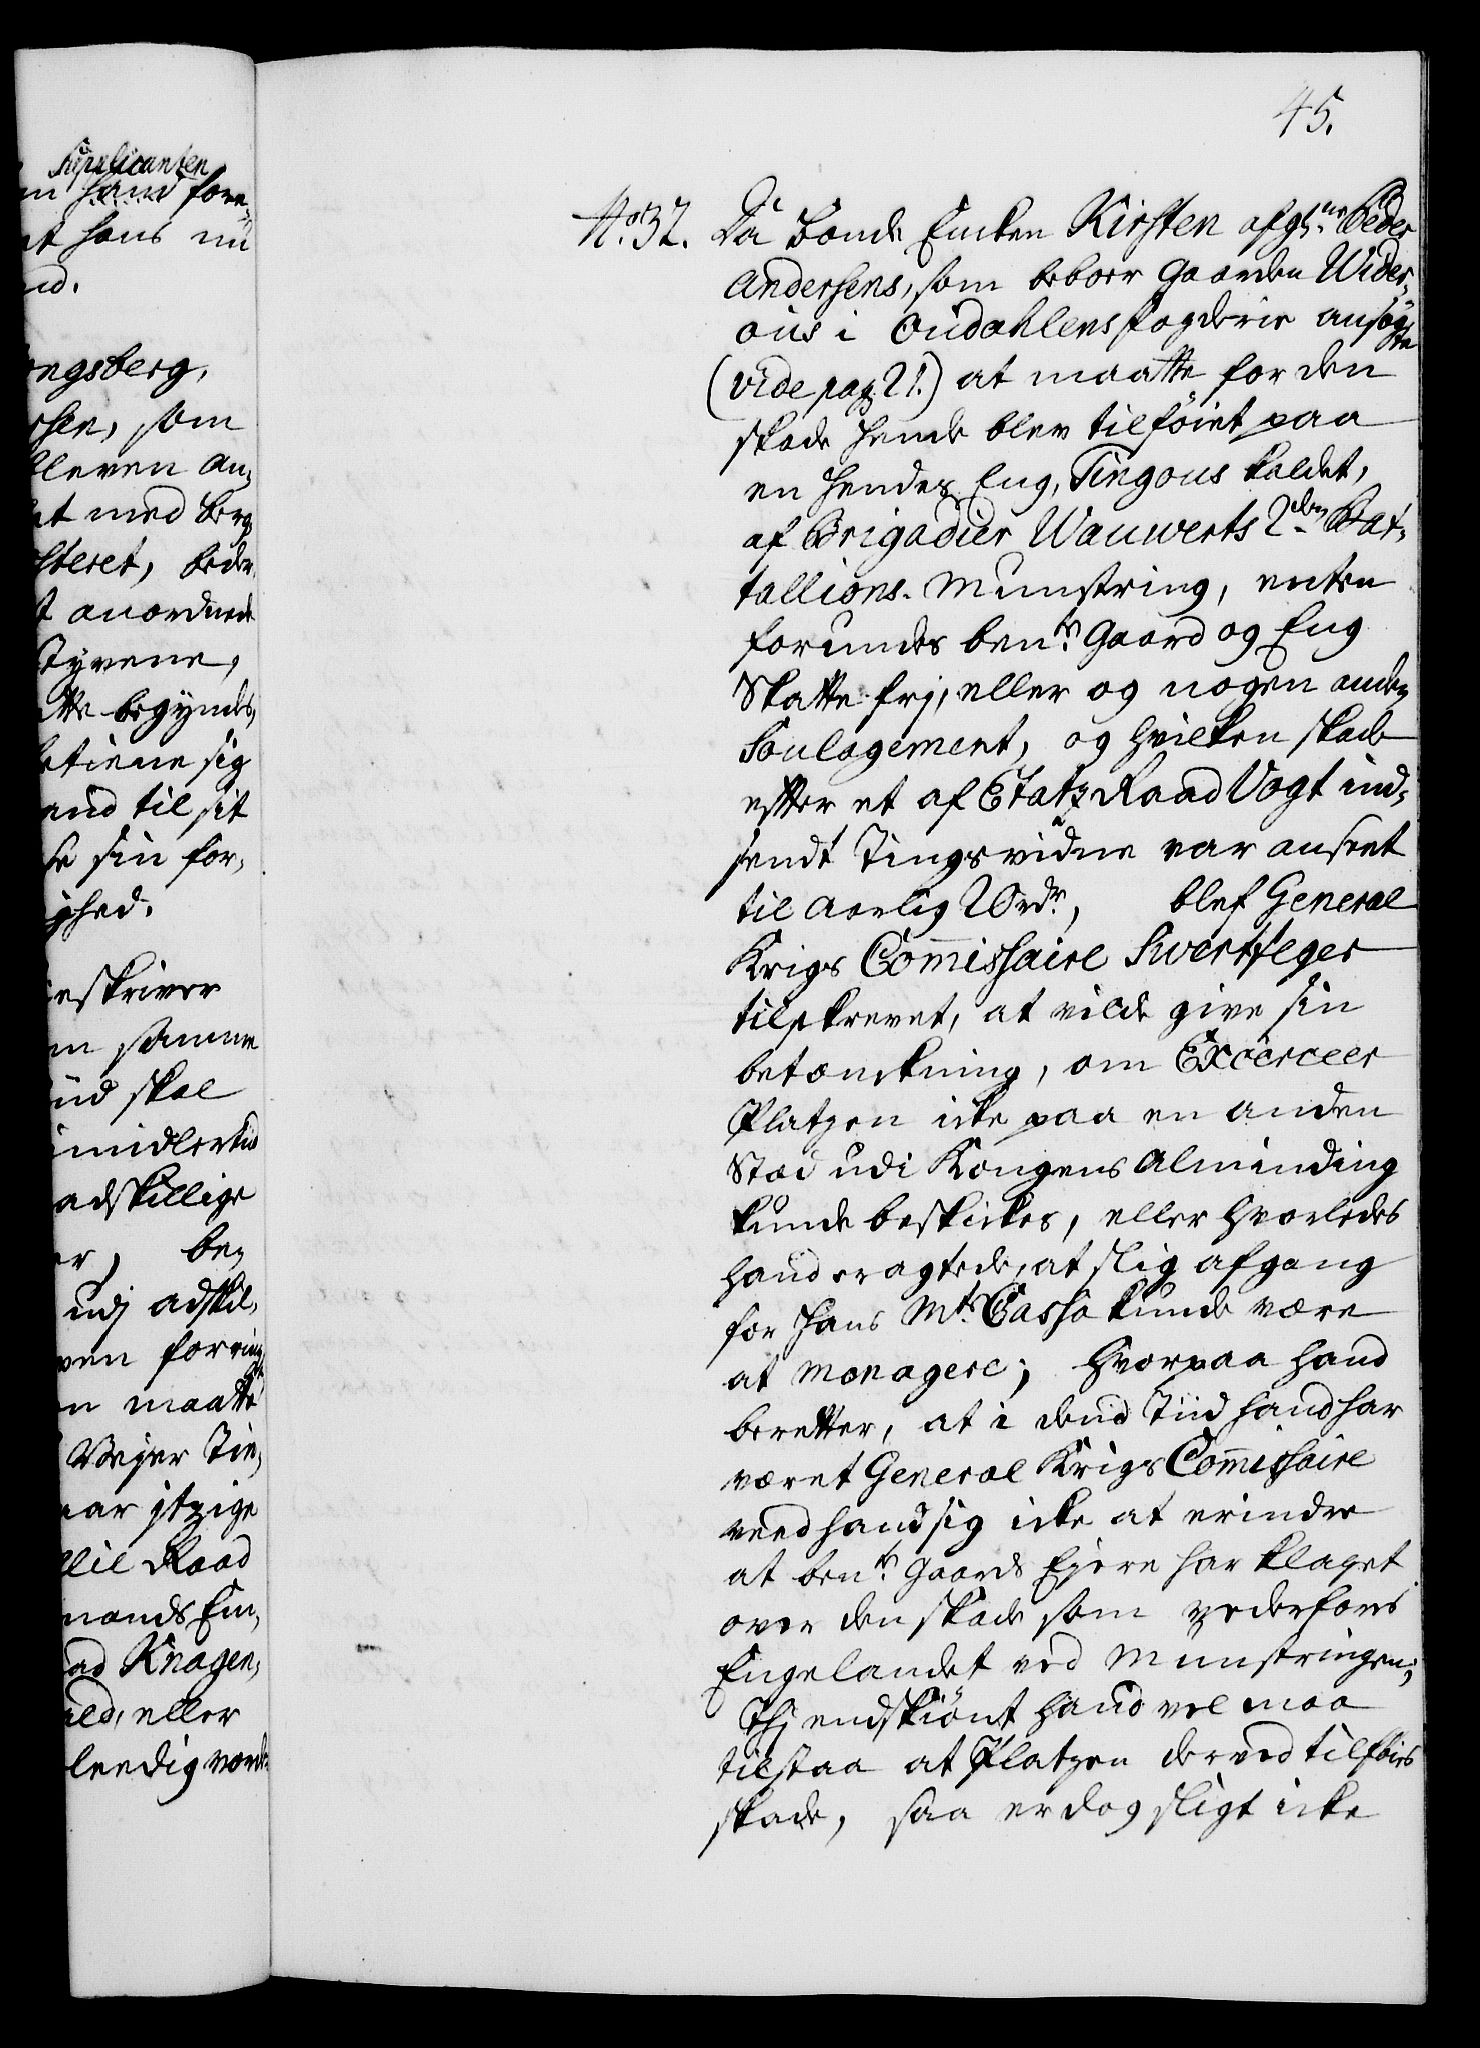 Supplicanten
hand fore-
at hans nu
ongsberg,
, som
bleven an-
at med berg
steret, beder
anordnede
Tyvene,
begyndes,
betiene sig
til sit
sin for-
skriver
samme
skal
imidlertid
adskillige
be-
udj adskil-
ven forring
maatte
Vejer Tie-
Raad
mands Em-
Knagen-
eller
45.
No. 32. Da Bonde Encken Kirsten afg: Peder
Andersens, som beboer Gaarden Wider-
øus i Oudahlens fogderie ansøgte
(vide pag. 21.) at maatte for den
skade hende blev tilføiet paa
en hendes Eng, Tingous kaldet,
af Brigadier Wauwerts 2den Bat-
tallions Munstring, enten
forundes ben:te Gaard og Eng
Skatte frj, eller og nogen anden
Soulagement, og hvilken skade
efter et af Etatz Raad Vogt ind-
sendt Tingsvidne var anseet
til aarlig 20 rdr., blef General
Krigs Commissaire Svertfeger
tilskrevet, at vilde give sin
betænckning, om Excerceer
Platzen icke paa en anden
Stæd udi Kongens Alminding
kunde beskickes, eller hvorledes
hand eragtede, at slig afgang
for Hans Mts Cassa kunde være
at menagere; Hvorpaa hand
beretter, at i dend Tiid hand har
været General Krigs Commissaire
veed hand sig icke at erindre
at ben:te Gaards Ejere har klaget
over den skade som vederfores
Engelandet ved Munstringen;
Thj endskiønt hand vel maa
tilstaa at Platzen derved tilføies
skade, saa er dog sligt icke